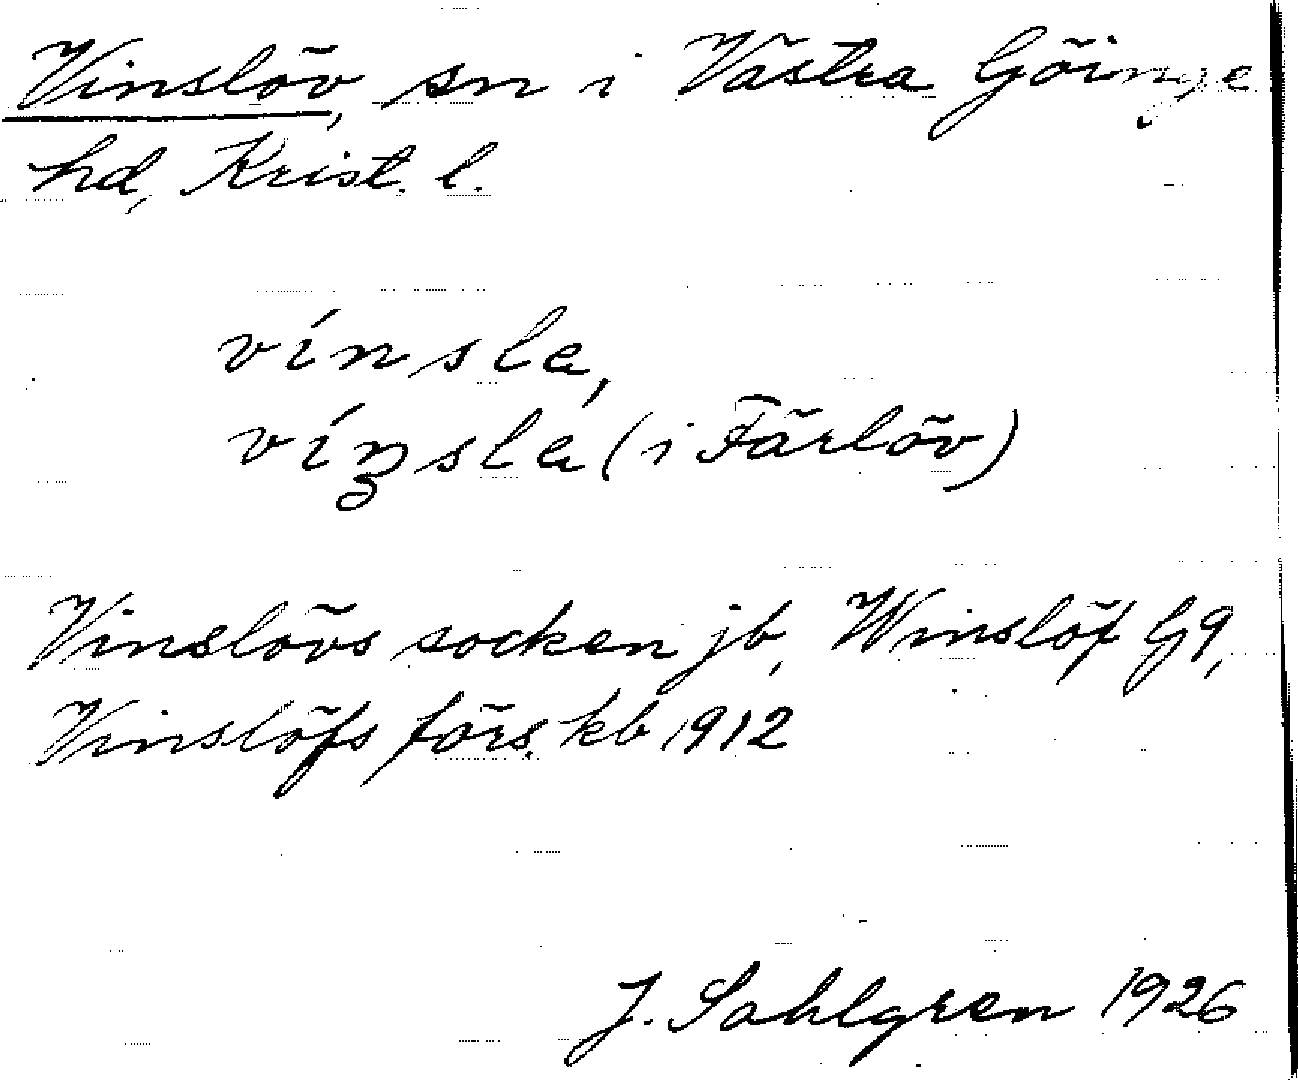 Vinslöv, sn i Västra Göinge
hd, Krist. l.
vínsla,
vínsla (i Färlöv)
Vinslövs socken jb, Winslöf G9,
Vinslöfs förs. kb 1912
J. Sahlgren 1926